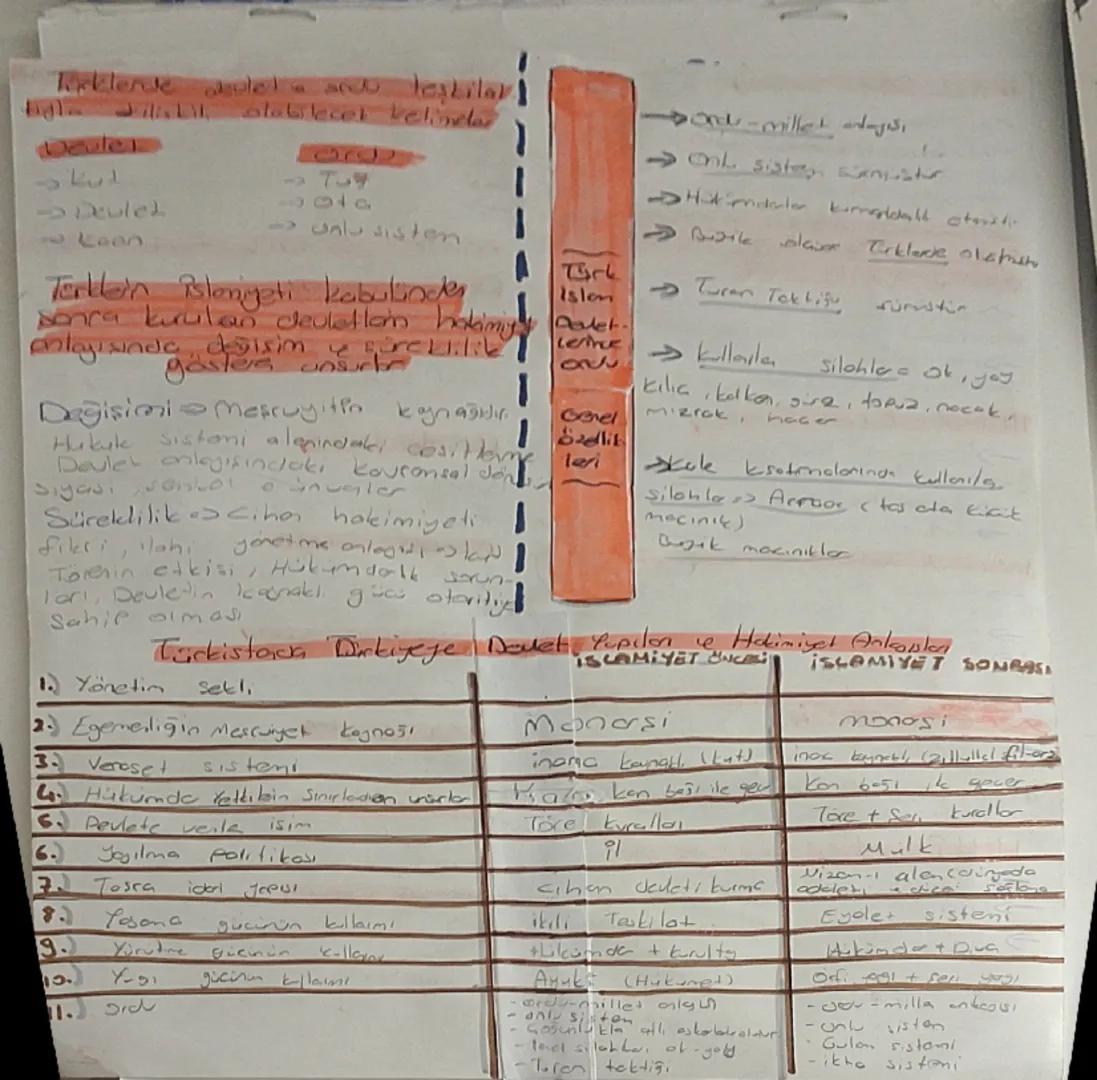 Türklerde devlet ve ordu teşkilatı
ilişkili olabilecek kelimeler
Devlet
→ Kut
→ Devlet
→ Kaan
Ordu
→ Tuğ
→ Ota
→ onlu sistem
Türklerin İslamiyeti kabulünden
sonra kurulan devletlerin hakimiyet
anlayışında değişim ve süreklilik
gösteren unsurlar
Değişimi ⇒ Meşruyitin kaynağıdır.
Hukuk sistemi alanındaki çeşitlenme
Devlet anlayışındaki kavramsal
siyasi, sembol ünvanlar
Süreklilik ⇒ Cihan hakimiyeti
fikri, ilahi yönetme anlayışı ⇒ kut
Törenin etkisi, Hükümdarlık sorun-
ları, Devletin kaynaklı gücü otoritiye
Sahip olması
Türk
İslam
Devlet-
lerinde
ordu
Genel
özellik
leri
→ ordu-millet anlayışı
→ Onlu sistem sürmüştür
→ Hükümdarlar
→ Türklerde olmamıştır
→ Turan Taktiği sürmüştür
→ Kullanılan silahlar = ok, yay
kılıç, kalkan, gürz, topuz, nacak,
mızrak, hançer
→ Kale kuşatmalarında kullanılan
silahlar ⇒ Arrade (taş atan küçük
mancınık)
Büyük mancınıklar
Türkistandan Türkiyeye Devlet Yapıları ve Hakimiyet Anlayışları
İSLAMİYET ÖNCESİ İSLAMİYET SONRASI
1.) Yönetim Şekli
2.) Egemenliğin Meşruiyet kaynağı Monarşi monarşi
3.) Veraset sistemi inanç kaynaklı (kut) inanç kaynaklı (zillullahi fil-arz
4.) Hükümdar Yetkilerin Sınırlandıran unsurlar kan bağı ile geçer Kan bağı ile geçer
5.) Devlete verilen isim Töre kuralları Töre + Şeri kurallar
6.) Yayılma Politikası il Mülk
7.) Taşra idari yapısı cihan devleti kurma Nizam-ı alem (dünyada
adaleti ve düzeni sağlama
8.) Yasama gücünün kullanımı ikili Teşkilat Eyalet sistemi
9.) Yürütme gücünün kullanımı Hükümdar + kurultay Hükümdar + Divan
10.) Yargı gücünün kullanımı Ayukı (Hükümet) Örfi yargı + şeri yargı
11.) Ordu
- ordu-millet anlayışı
- onlu sistem
- Çoğunlukla atlı askerlerden oluşur
- Temel silahları ok-yay
- Turan taktiği
- ordu-millet anlayışı
- onlu sistem
- Gulam sistemi
- ikta sistemi